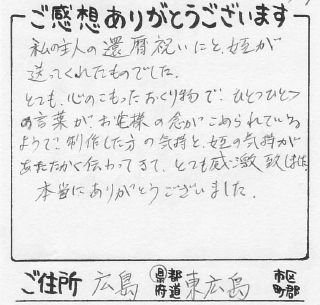 ご感想ありがとうございます
私の主人の還暦祝いにと、姪が
送ってくれたものでした。
とても、心のこもったおくり物で、ひとつひとつ
の言葉がお客様の念がこめられている
ようで、制作した方の気持と、姪の気持が
あたたかく伝わってきて、とても感激致しました
本当にありがとうございました。
ご住所 広島 県都府道 東広島 市区町郡